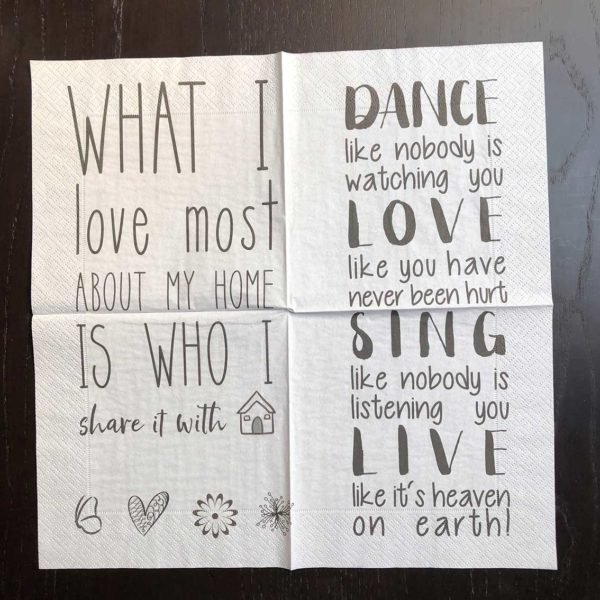 WHAT I
love most
ABOUT MY HOME
IS WHO I
share it with
DANCE
like nobody is
watching you
LOVE
like you have
never been hurt
SING
like nobody is
listening you
LIVE
like it's heaven
on earth!